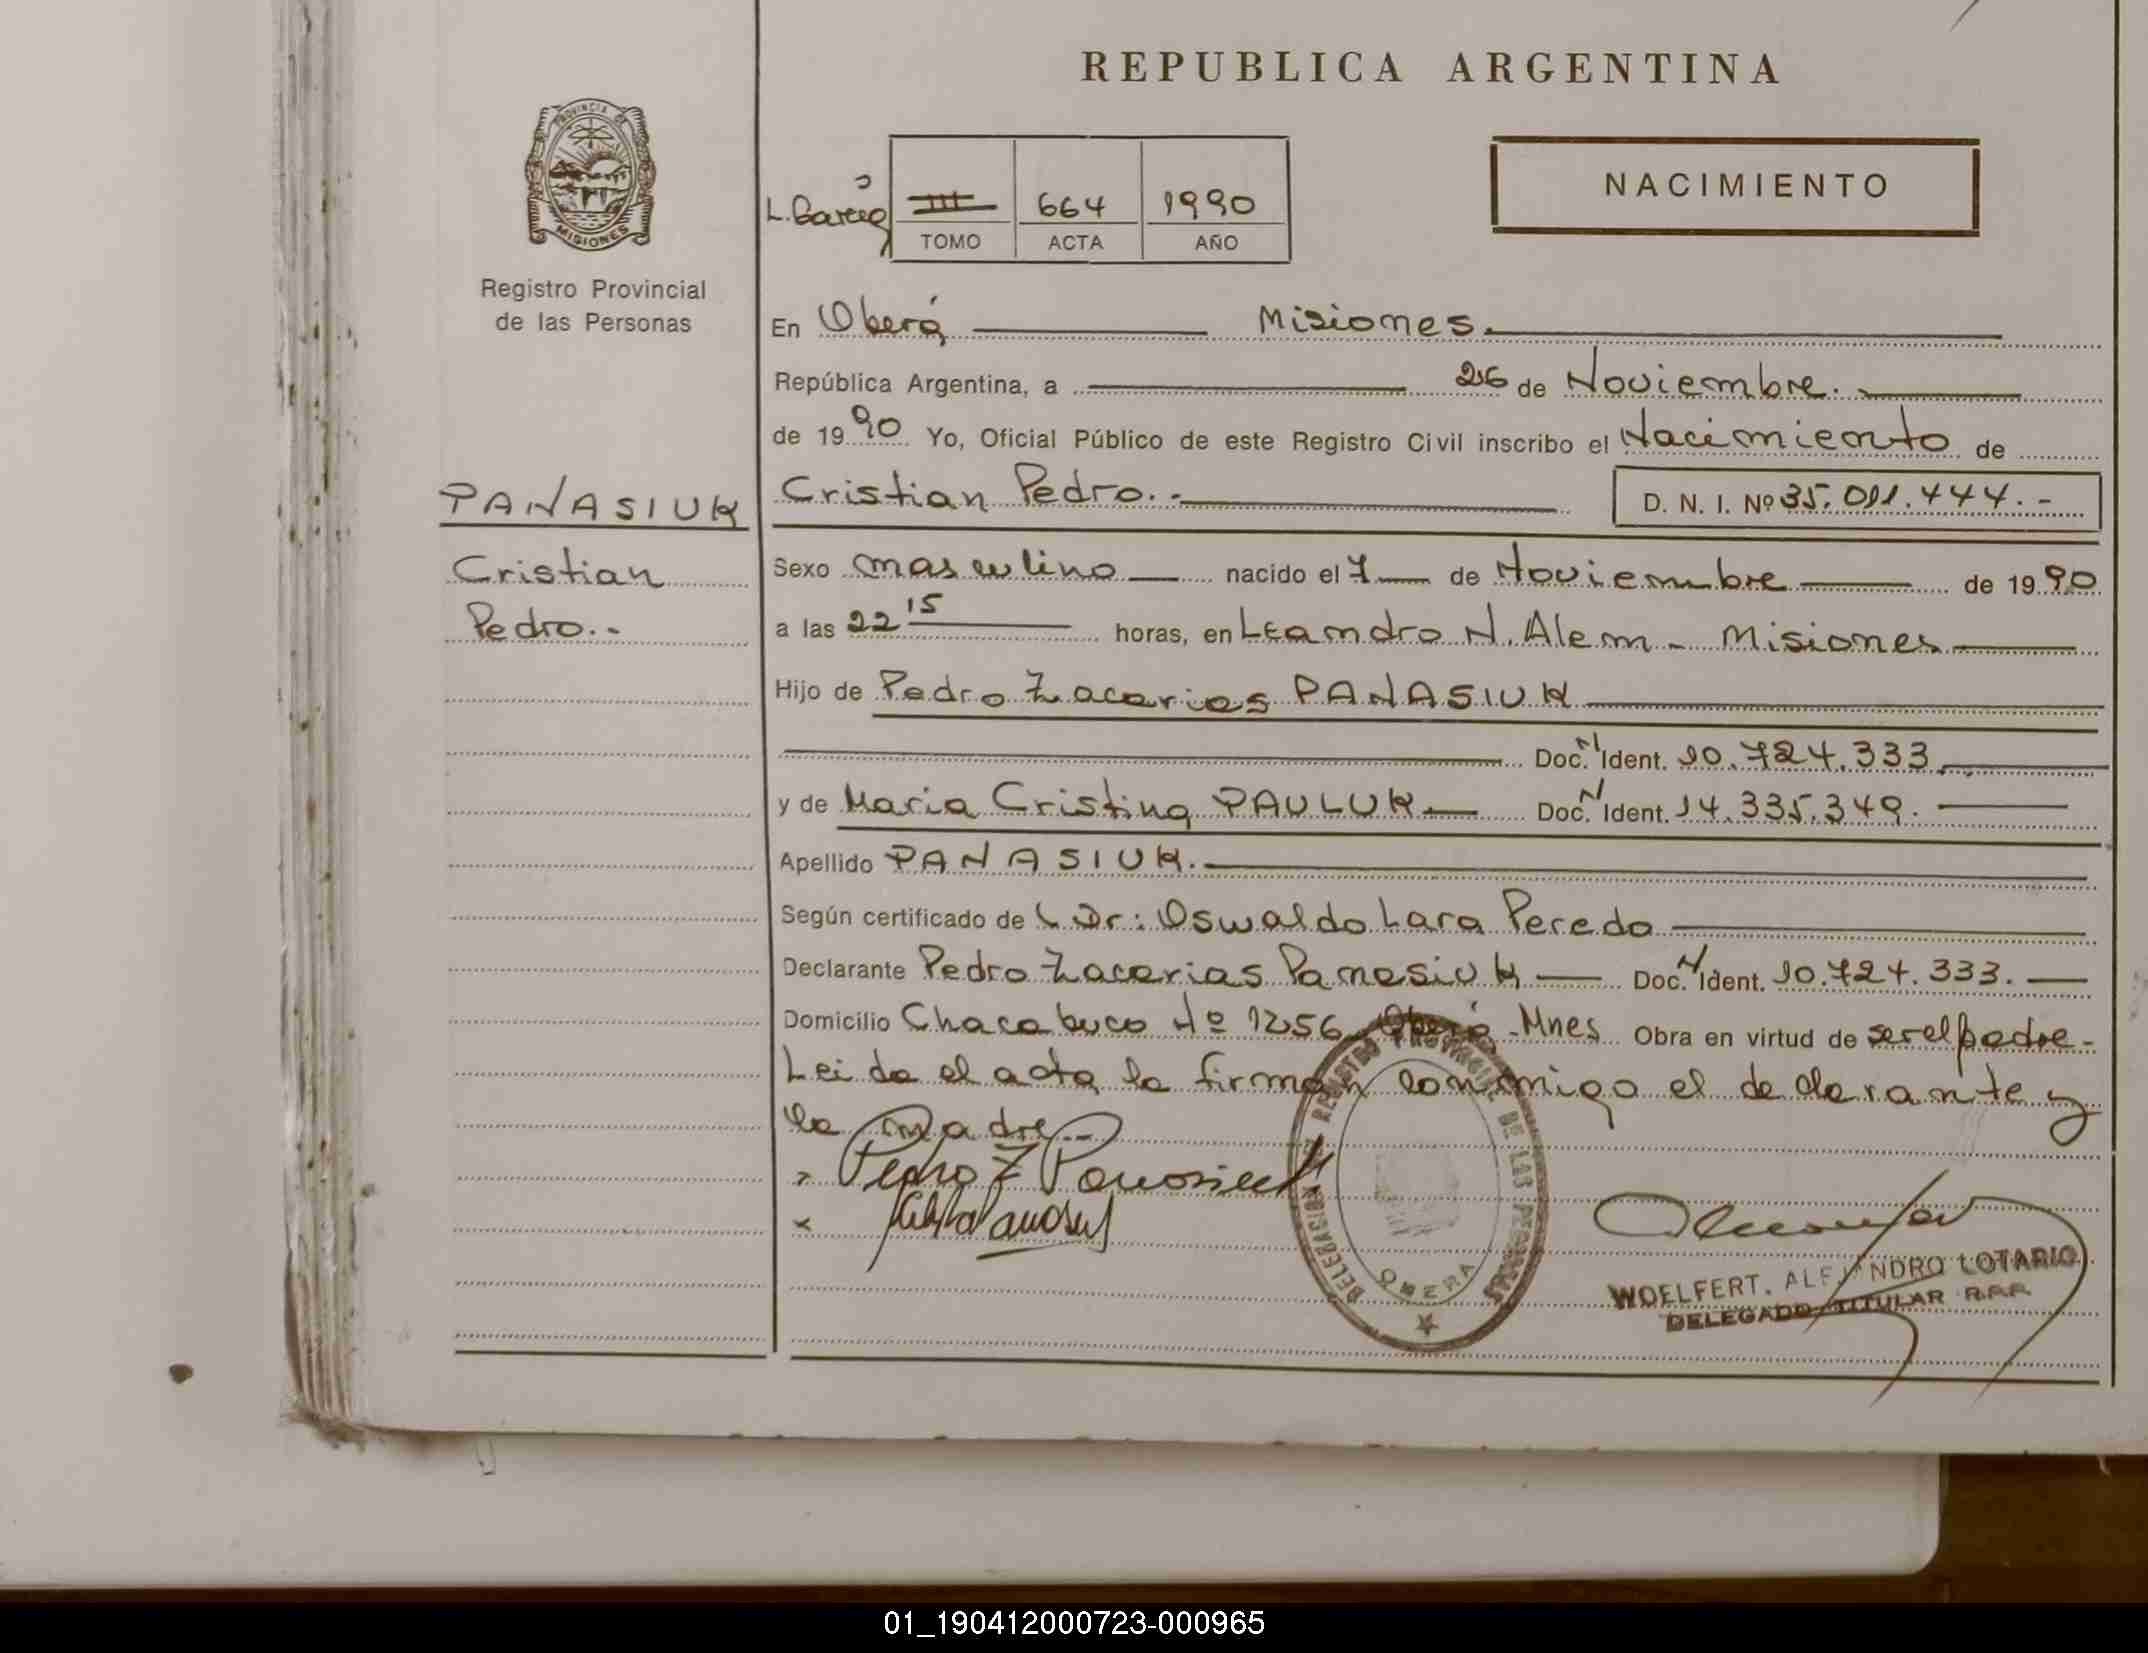 REPUBLICA ARGENTINA
PROVINCIA DE
MISIONES
Registro Provincial
de las Personas
NACIMIENTO
III 664 1990
TOMO ACTA AÑO
En Oberá Misiones.
República Argentina, a 26 de Noviembre.
de 1990 Yo, Oficial Público de este Registro Civil inscribo el Nacimiento de
PANASIUK
Cristian
Pedro.-
Cristian Pedro.- D. N. I. Nº 35.011.444.-
Sexo masculino nacido el 7 de Noviembre de 1990
a las 22 15 horas, en Leandro N. Alem - Misiones
Hijo de Pedro Zacarias PANASIUK
Doc. N Ident. 10.724.333.
y de Maria Cristina PAULUK Doc. N Ident. 14.335.349.
Apellido PANASIUK.
Según certificado de Dr: Oswaldo Lara Peredo
Declarante Pedro Zacarias Panasiuk Doc. N Ident. 10.724.333.
Domicilio Chacabuco Nº 1256 Oberá - Mnes Obra en virtud de ser el padre-
Leida el acta la firman conmigo el declarante y
la madre.-
Pedro Z Panasiuk
DELEGACION REGISTRO PROVINCIAL DE LAS PERSONAS
OBERA
WOELFERT, ALEJANDRO LOTARIO
DELEGADO TITULAR R.P.P.
01_190412000723-000965